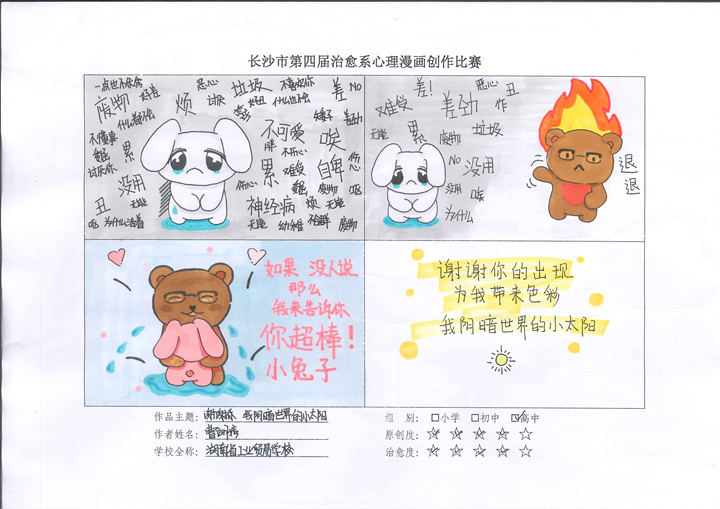 长沙市第四届治愈系心理漫画创作比赛
一点也不体贴
恶心
垃圾
不喜欢你
差
No
废物
好差
烦
讨厌
好丑
什么也不会
什么都不会
矮子
差劲
不懂事
累
不可爱
唉
胖
不开心
讨厌你
累
难受
自卑
伤心
没用
伤心
废物
丑
无能
神经病
烦
无能
唉
为什么活着
无能
幼稚
不合群
废物
难受
差!
恶心
丑
差劲
作
无能
累
废物
垃圾
No
没用
伤心
没用
唉
为什么
退
退
如果 没人说
那么
我来告诉你
你超棒!
小兔子
谢谢你的出现
为我带来色彩
我阴暗世界的小太阳
作品主题: 谢谢你 我阴暗世界的小太阳
组 别: 小学 初中 高中
作者姓名:
原创度:
学校全称: 湖南省工业贸易学校
治愈度: